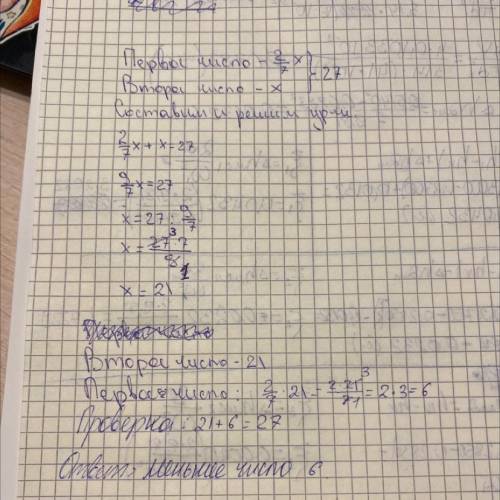 Первое число - 2/7 x } - 27
Второе число - x
Составим и решим урав.
2/7 x + x = 27
9/7 x = 27
x = 27 : 9/7
x = 27³ · 7 / 9₁
x = 21
Второе число - 21
Первое число: 2/7 · 21 = 2·21³ / 7₁ = 2·3 = 6
Проверка: 21 + 6 = 27
Ответ: меньшее число 6